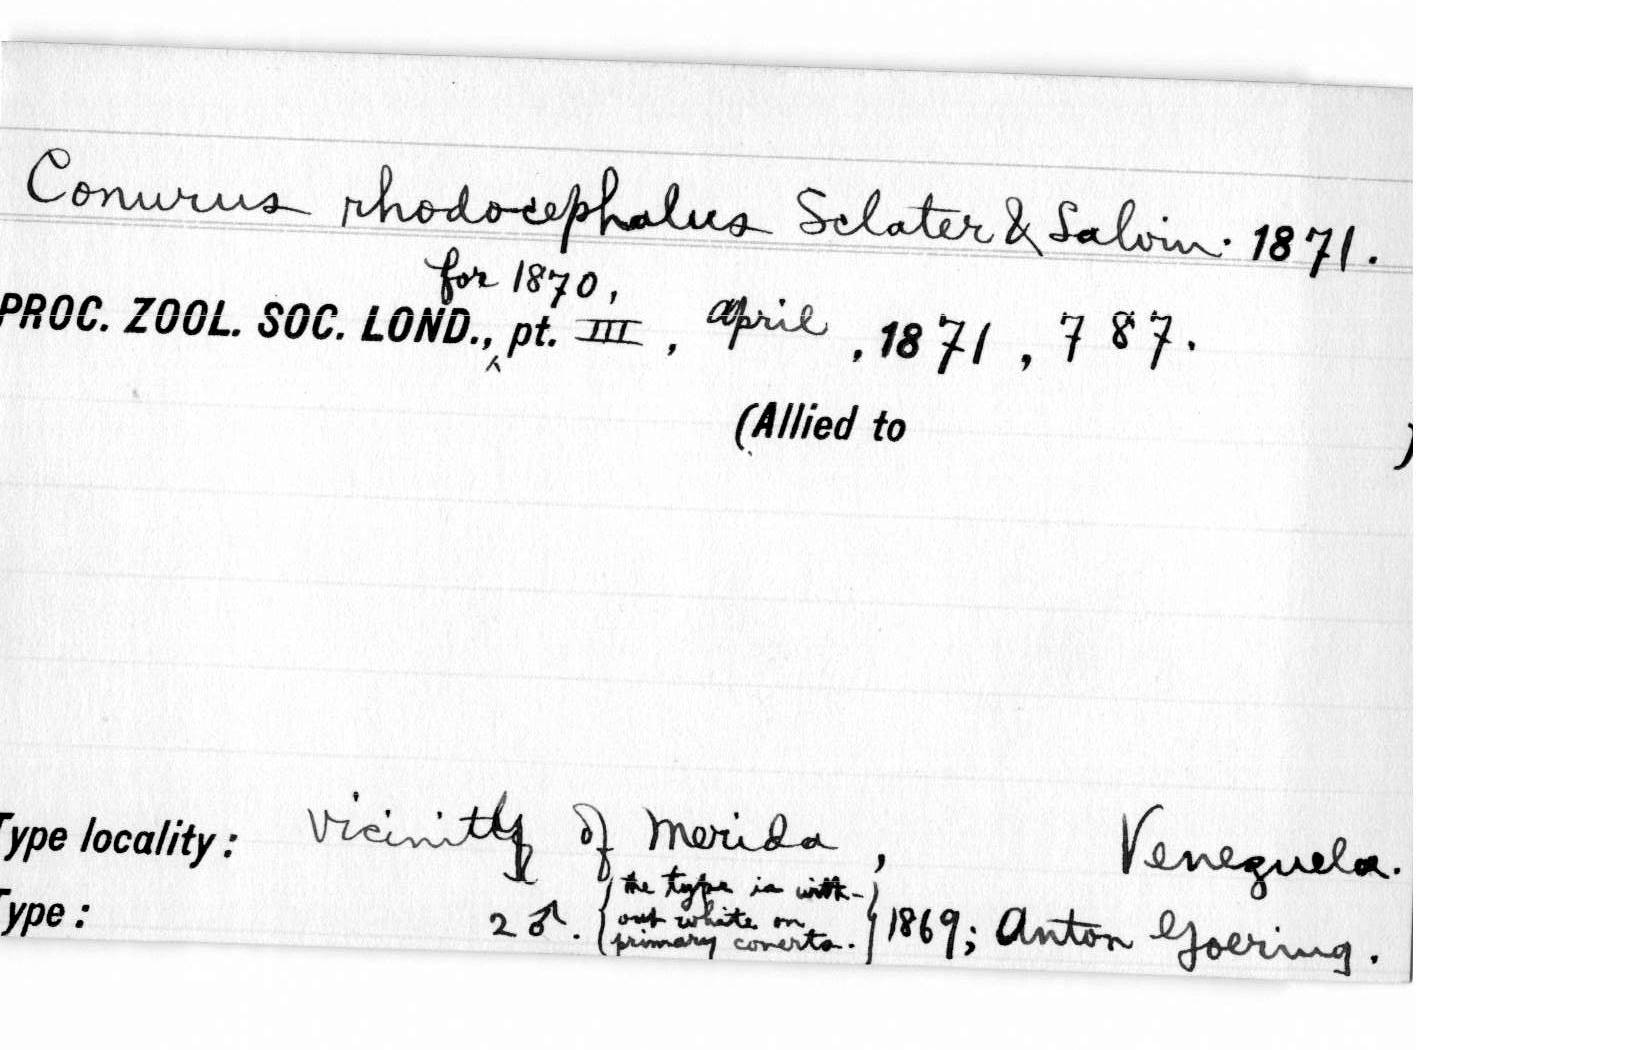 Conurus rhodocephalus Sclater & Salvin. 1871.
for 1870,
PROC. ZOOL. SOC. LOND., pt. III, april, 1871, 787.
(Allied to )
Type locality: Vicinity of Merida, Venezuela.
Type: 2 ♂. {the type is with-
out white on
primary coverts.} 1869; Anton Goering.